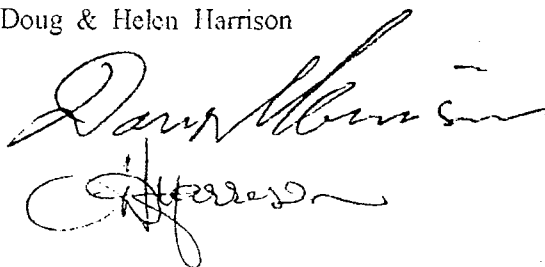 Doug & Helen Harrison
Doug Harrison
H Harrison